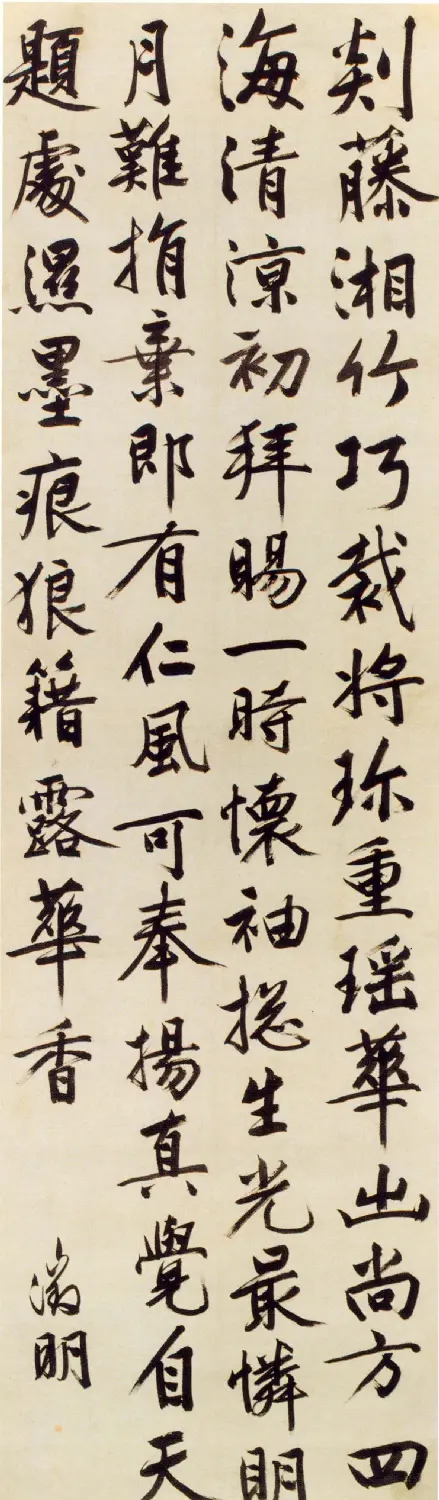 剡藤湘竹巧裁將珎重瑶華出尚方四
海清涼初拜賜一時懷袖揔生光最憐明
月難捐棄即有仁風可奉揚真覺自天
題處濕墨痕狼籍露華香
徵明